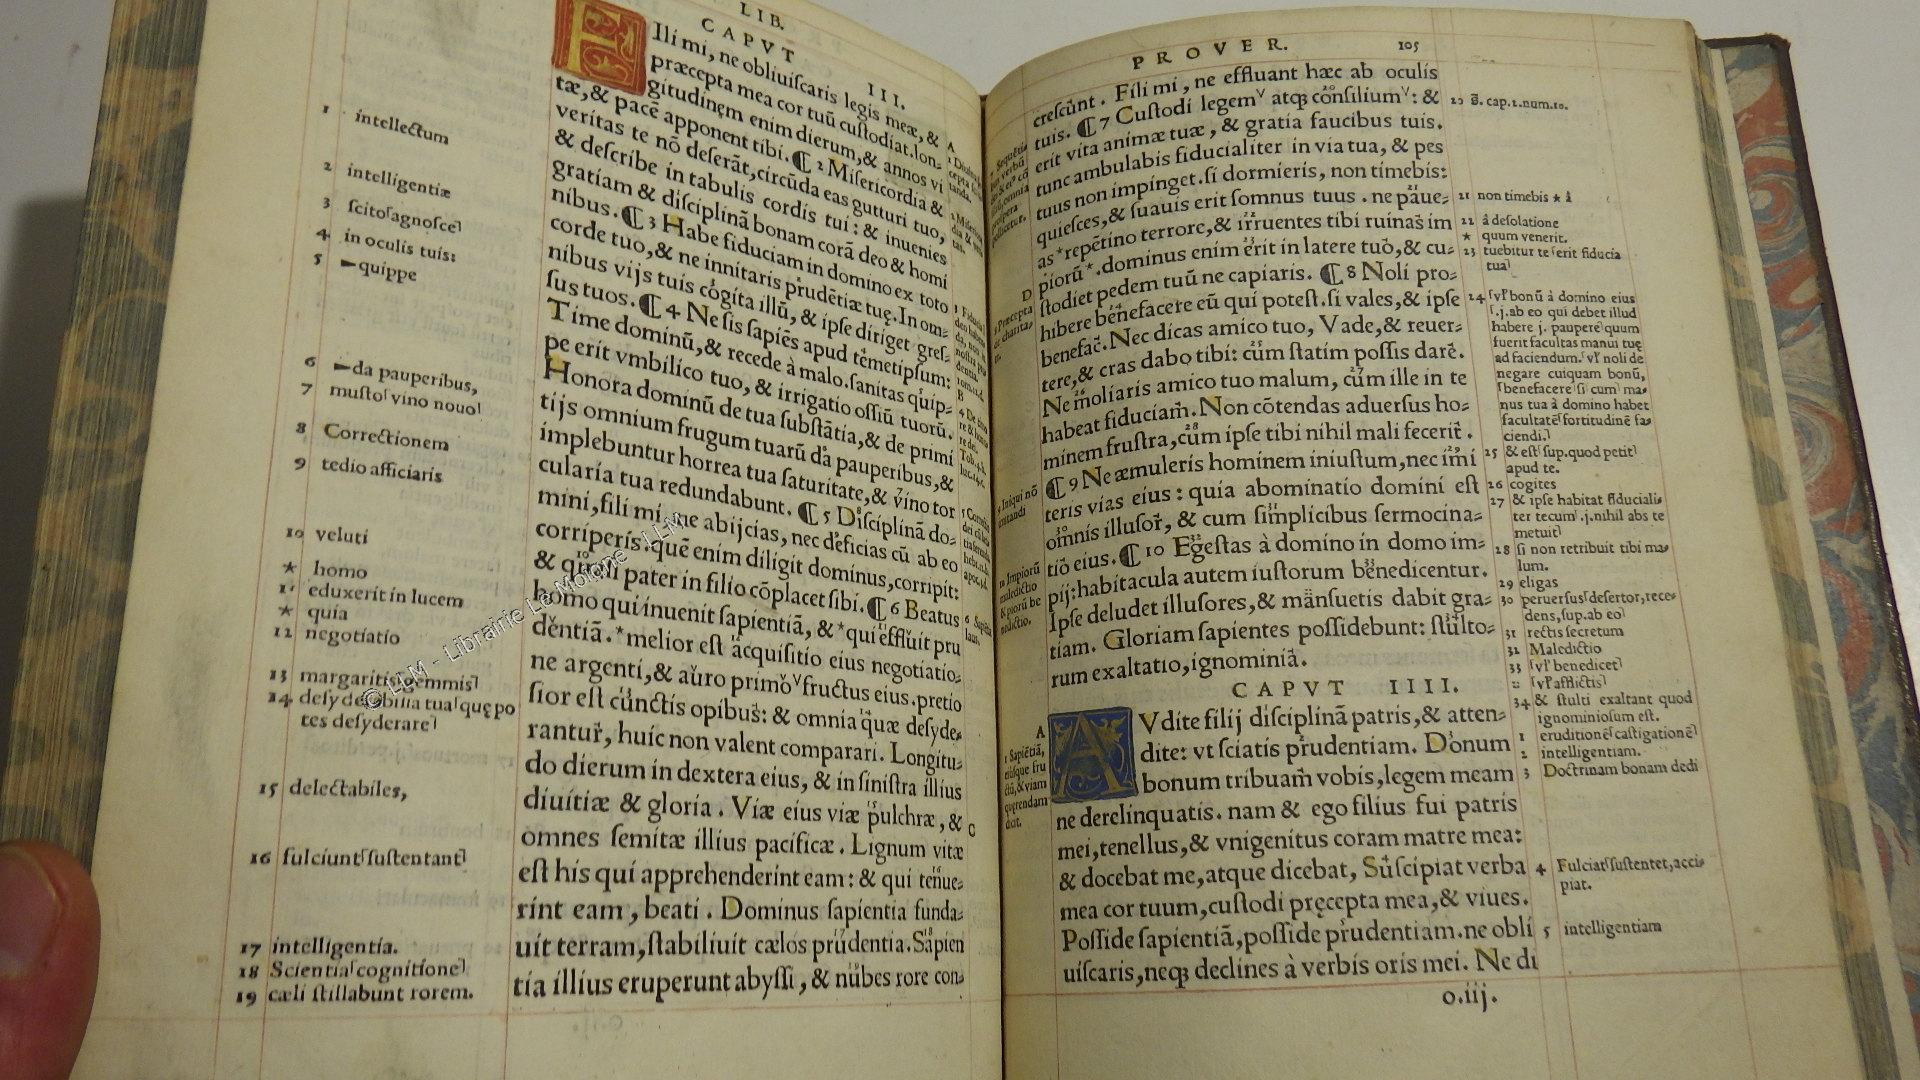 LIB.
CAPVT III.
FIli mi, ne obliuiscaris legis meæ, &
præcepta mea cor tuū custodiat. lon-
gitudinẹm enim dierum, & annos vi
tæ, & pacē apponent tibi. ¶ 2 Misericordia &
veritas te nō deserāt, circūda eas gutturi tuo,
& describe in tabulis cordis tui: & inuenies
gratiam & disciplinā bonam corā deo & homi
nibus. ¶ 3 Habe fiduciam in domino ex toto
corde tuo, & ne innitaris prudētiæ tuę. In om-
nibus vijs tuis cogita illū, & ipse diriget gres-
sus tuos. ¶ 4 Ne sis sapiēs apud temetipsum:
Time dominū, & recede à malo. sanitas quip-
pe erit vmbilico tuo, & irrigatio ossiū tuorū.
Honora dominū de tua substātia, & de primi
tijs omnium frugum tuarū da pauperibus, &
implebuntur horrea tua saturitate, & vino tor
cularia tua redundabunt. ¶ 5 Disciplinā do-
mini, fili mi, ne abijcias, nec deficias cū ab eo
corriperis. quē enim diligit dominus, corripit:
& quasi pater in filio cōplacet sibi. ¶ 6 Beatus
homo qui inuenit sapientiā, & *qui effluit pru
dentiā. *melior est acquisitio eius negotiatio-
ne argenti, & auro primo fructus eius. pretio
sior est cunctis opibus: & omnia quæ desyde-
rantur, huic non valent comparari. Longitu-
do dierum in dextera eius, & in sinistra illius
diuitiæ & gloria. Viæ eius viæ pulchræ, &
omnes semitæ illius pacificæ. Lignum vitæ
est his qui apprehenderint eam: & qui tenue-
rint eam, beati. Dominus sapientia funda-
uit terram, stabiliuit cælos prudentia. Sapien
tia illius eruperunt abyssi, & nubes rore con-
1 intellectum
2 intelligentiæ
3 scito⸢agnosce⸣
4 in oculis tuis:
5 quippe
6 da pauperibus,
7 musto⸢vino nouo⸣
8 Correctionem
9 tedio afficiaris
10 veluti
* homo
11 eduxerit in lucem
* quia
12 negotiatio
13 margaritis⸢gemmis⸣
14 desyderabilia tua⸢quę po
tes desyderare⸣
15 delectabiles,
16 fulciunt⸢sustentant⸣
17 intelligentia.
18 Scientia⸢cognitione⸣
19 cæli stillabunt rorem.
© LLM - Librairie Le Moione - LLM
PROVER. 105
crescunt. Fili mi, ne effluant hæc ab oculis
tuis. ¶ 7 Custodi legem atq; consilium: &
erit vita animæ tuæ, & gratia faucibus tuis.
tunc ambulabis fiducialiter in via tua, & pes
tuus non impinget. si dormieris, non timebis:
quiesces, & suauis erit somnus tuus. ne paue-
as *repetino terrore, & irruentes tibi ruinas im
piorū*. dominus enim erit in latere tuo, & cu-
stodiet pedem tuū ne capiaris. ¶ 8 Noli pro-
hibere benefacere eū qui potest. si vales, & ipse
benefac. Nec dicas amico tuo, Vade, & reuer-
tere, & cras dabo tibi: cùm statim possis dare.
Ne moliaris amico tuo malum, cùm ille in te
habeat fiduciam. Non cōtendas aduersus ho-
minem frustra, cùm ipse tibi nihil mali fecerit.
¶ 9 Ne æmuleris hominem iniustum, nec imi
teris vias eius: quia abominatio domini est
omnis illusor, & cum simplicibus sermocina-
tio eius. ¶ 10 Egestas à domino in domo im-
pij: habitacula autem iustorum benedicentur.
Ipse deludet illusores, & mansuetis dabit gra-
tiam. Gloriam sapientes possidebunt: stulto-
rum exaltatio, ignominiā.
CAPVT IIII.
AVdite filij disciplinā patris, & atten-
dite: vt sciatis prudentiam. Donum
bonum tribuam vobis, legem meam
ne derelinquatis. nam & ego filius fui patris
mei, tenellus, & vnigenitus coram matre mea:
& docebat me, atque dicebat, Suscipiat verba
mea cor tuum, custodi pręcepta mea, & viues.
Posside sapientiā, posside prudentiam. ne obli
uiscaris, neq; declines à verbis oris mei. Ne di
o.iij.
20 s̄. cap.1.num.10.
21 non timebis * à
22 à desolatione
* quum venerit.
23 tuebitur te⸢erit fiducia
tua⸣
24 ⸢vl̄ bonū à domino eius
⸢.j. ab eo qui debet illud
habere j. paupere quum
fuerit facultas manui tuę
ad faciendum.⸢vl̄ noli de
negare cuiquam bonū,
⸢benefacere⸣si cum ma-
nus tua à domino habet
facultatē⸢fortitudinē fa-
ciendi.⸣
25 & est⸢sup. quod petit⸣
apud te.
26 cogites
27 & ipse habitat fiduciali-
ter tecum⸢.j. nihil abs te
metuit⸣
28 si non retribuit tibi ma-
lum.
29 eligas
30 peruersus⸢desertor, rece-
dens, sup. ab eo⸣
31 rectis secretum
32 Maledictio
33 ⸢vl̄ benedicet⸣
⸢vl̄ afflictis⸣
34 & stulti exaltant quod
ignominiosum est.
1 eruditionē⸢castigationē⸣
2 intelligentiam.
3 Doctrinam bonam dedi
4 Fulciat⸢sustentet, acci-
piat.
5 intelligentiam